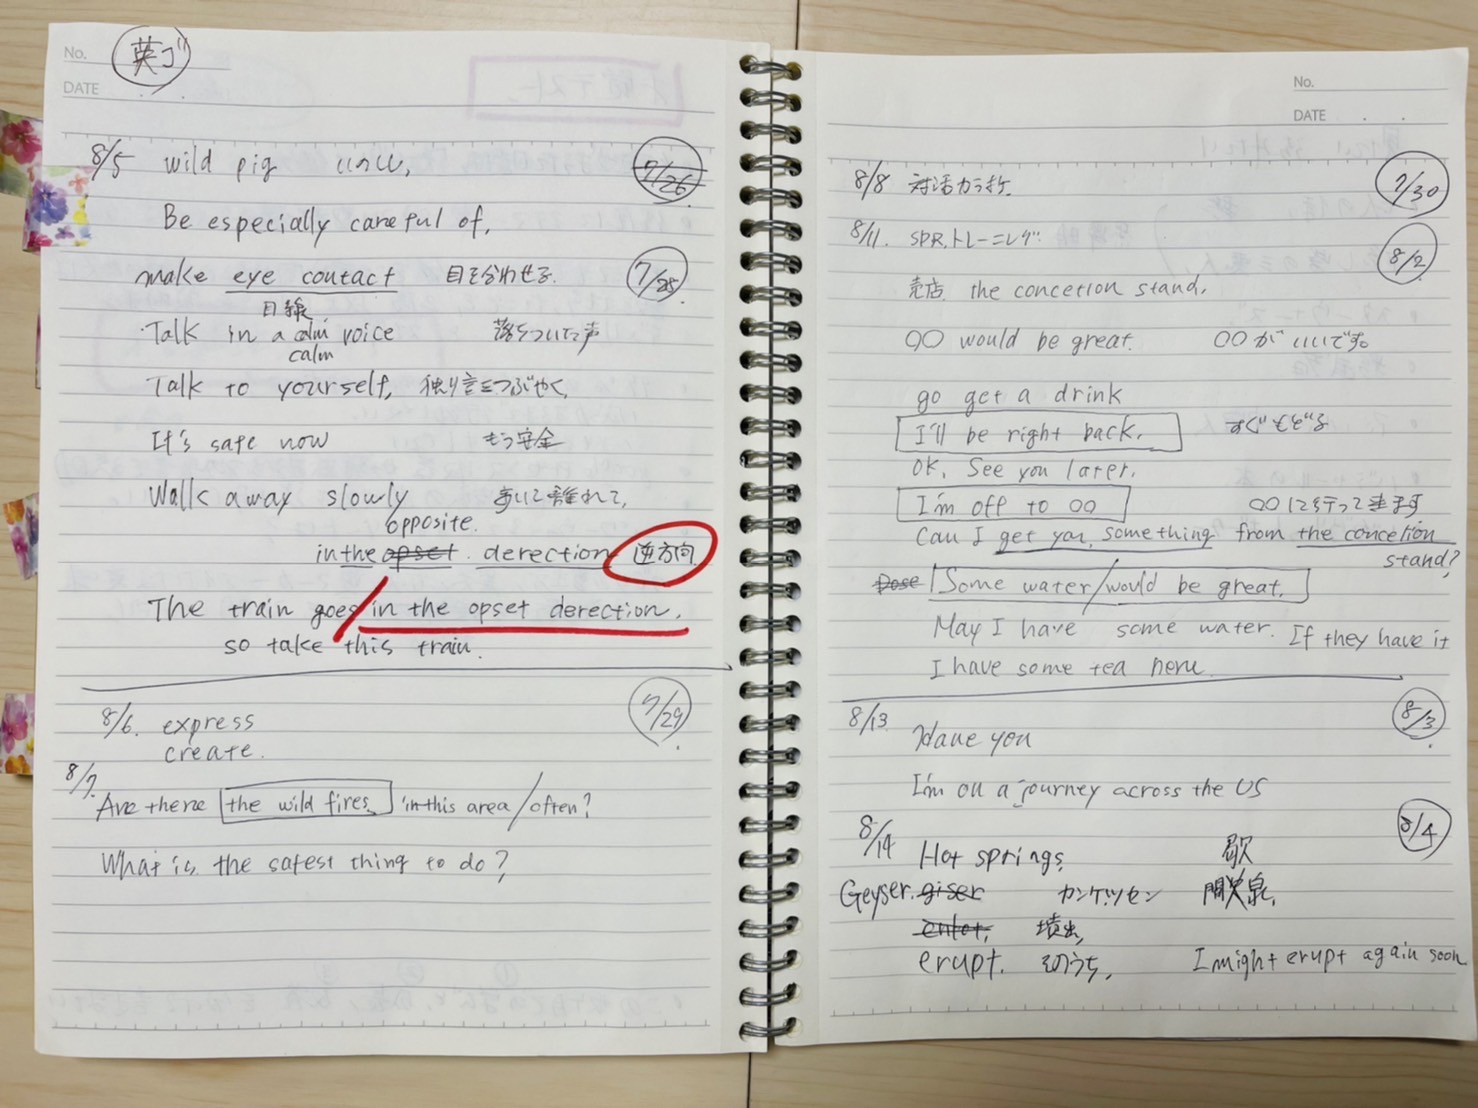 No.
英ゴ
DATE
8/5 wild pig いのしし
7/26
Be especially careful of.
make eye contact 目を合わせる
7/28
目線
Talk in a calm voice 落ちついた声
calm
Talk to yourself, 独り言をつぶやく
It's safe now もう安全
Walk away slowly 歩いて離れて,
opposite.
in the opset. derection 逆方向
The train goes/in the opset derection,
so take this train.
8/6. express
7/29
create.
8/7.
Are there the wild fires in this area/often?
What is the safest thing to do?
No.
DATE
8/8
7/30
8/11. SPR.トレーニング
8/2
売店 the concetion stand,
○○ would be great. ○○がいいです。
go get a drink
I'll be right back. すぐもどる
OK, See you later.
I'm off to ○○ ○○に行って来ます
Can I get you something from the concetion
stand?
Dose Some water/would be great.
May I have some water. If they have it
I have some tea here
8/13
8/3
Have you
I'm on a journey across the US
8/14
8/4
Hot springs, 歇
Geyser. giser カンケツセン 間歇泉,
enlot, 噴出,
erupt. そのうち, I might erupt again soon